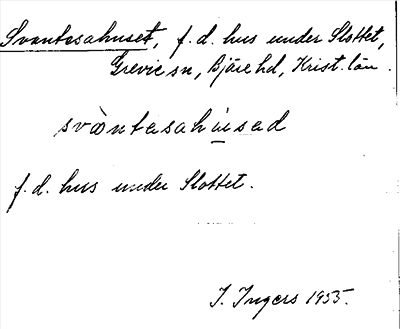 Svantesahuset, f.d. hus under Slottet,
Grevie sn, Bjäre hd, Krist. län.
svàntesahu̱sed
f.d. hus under Slottet.
I. Ingers 1955.